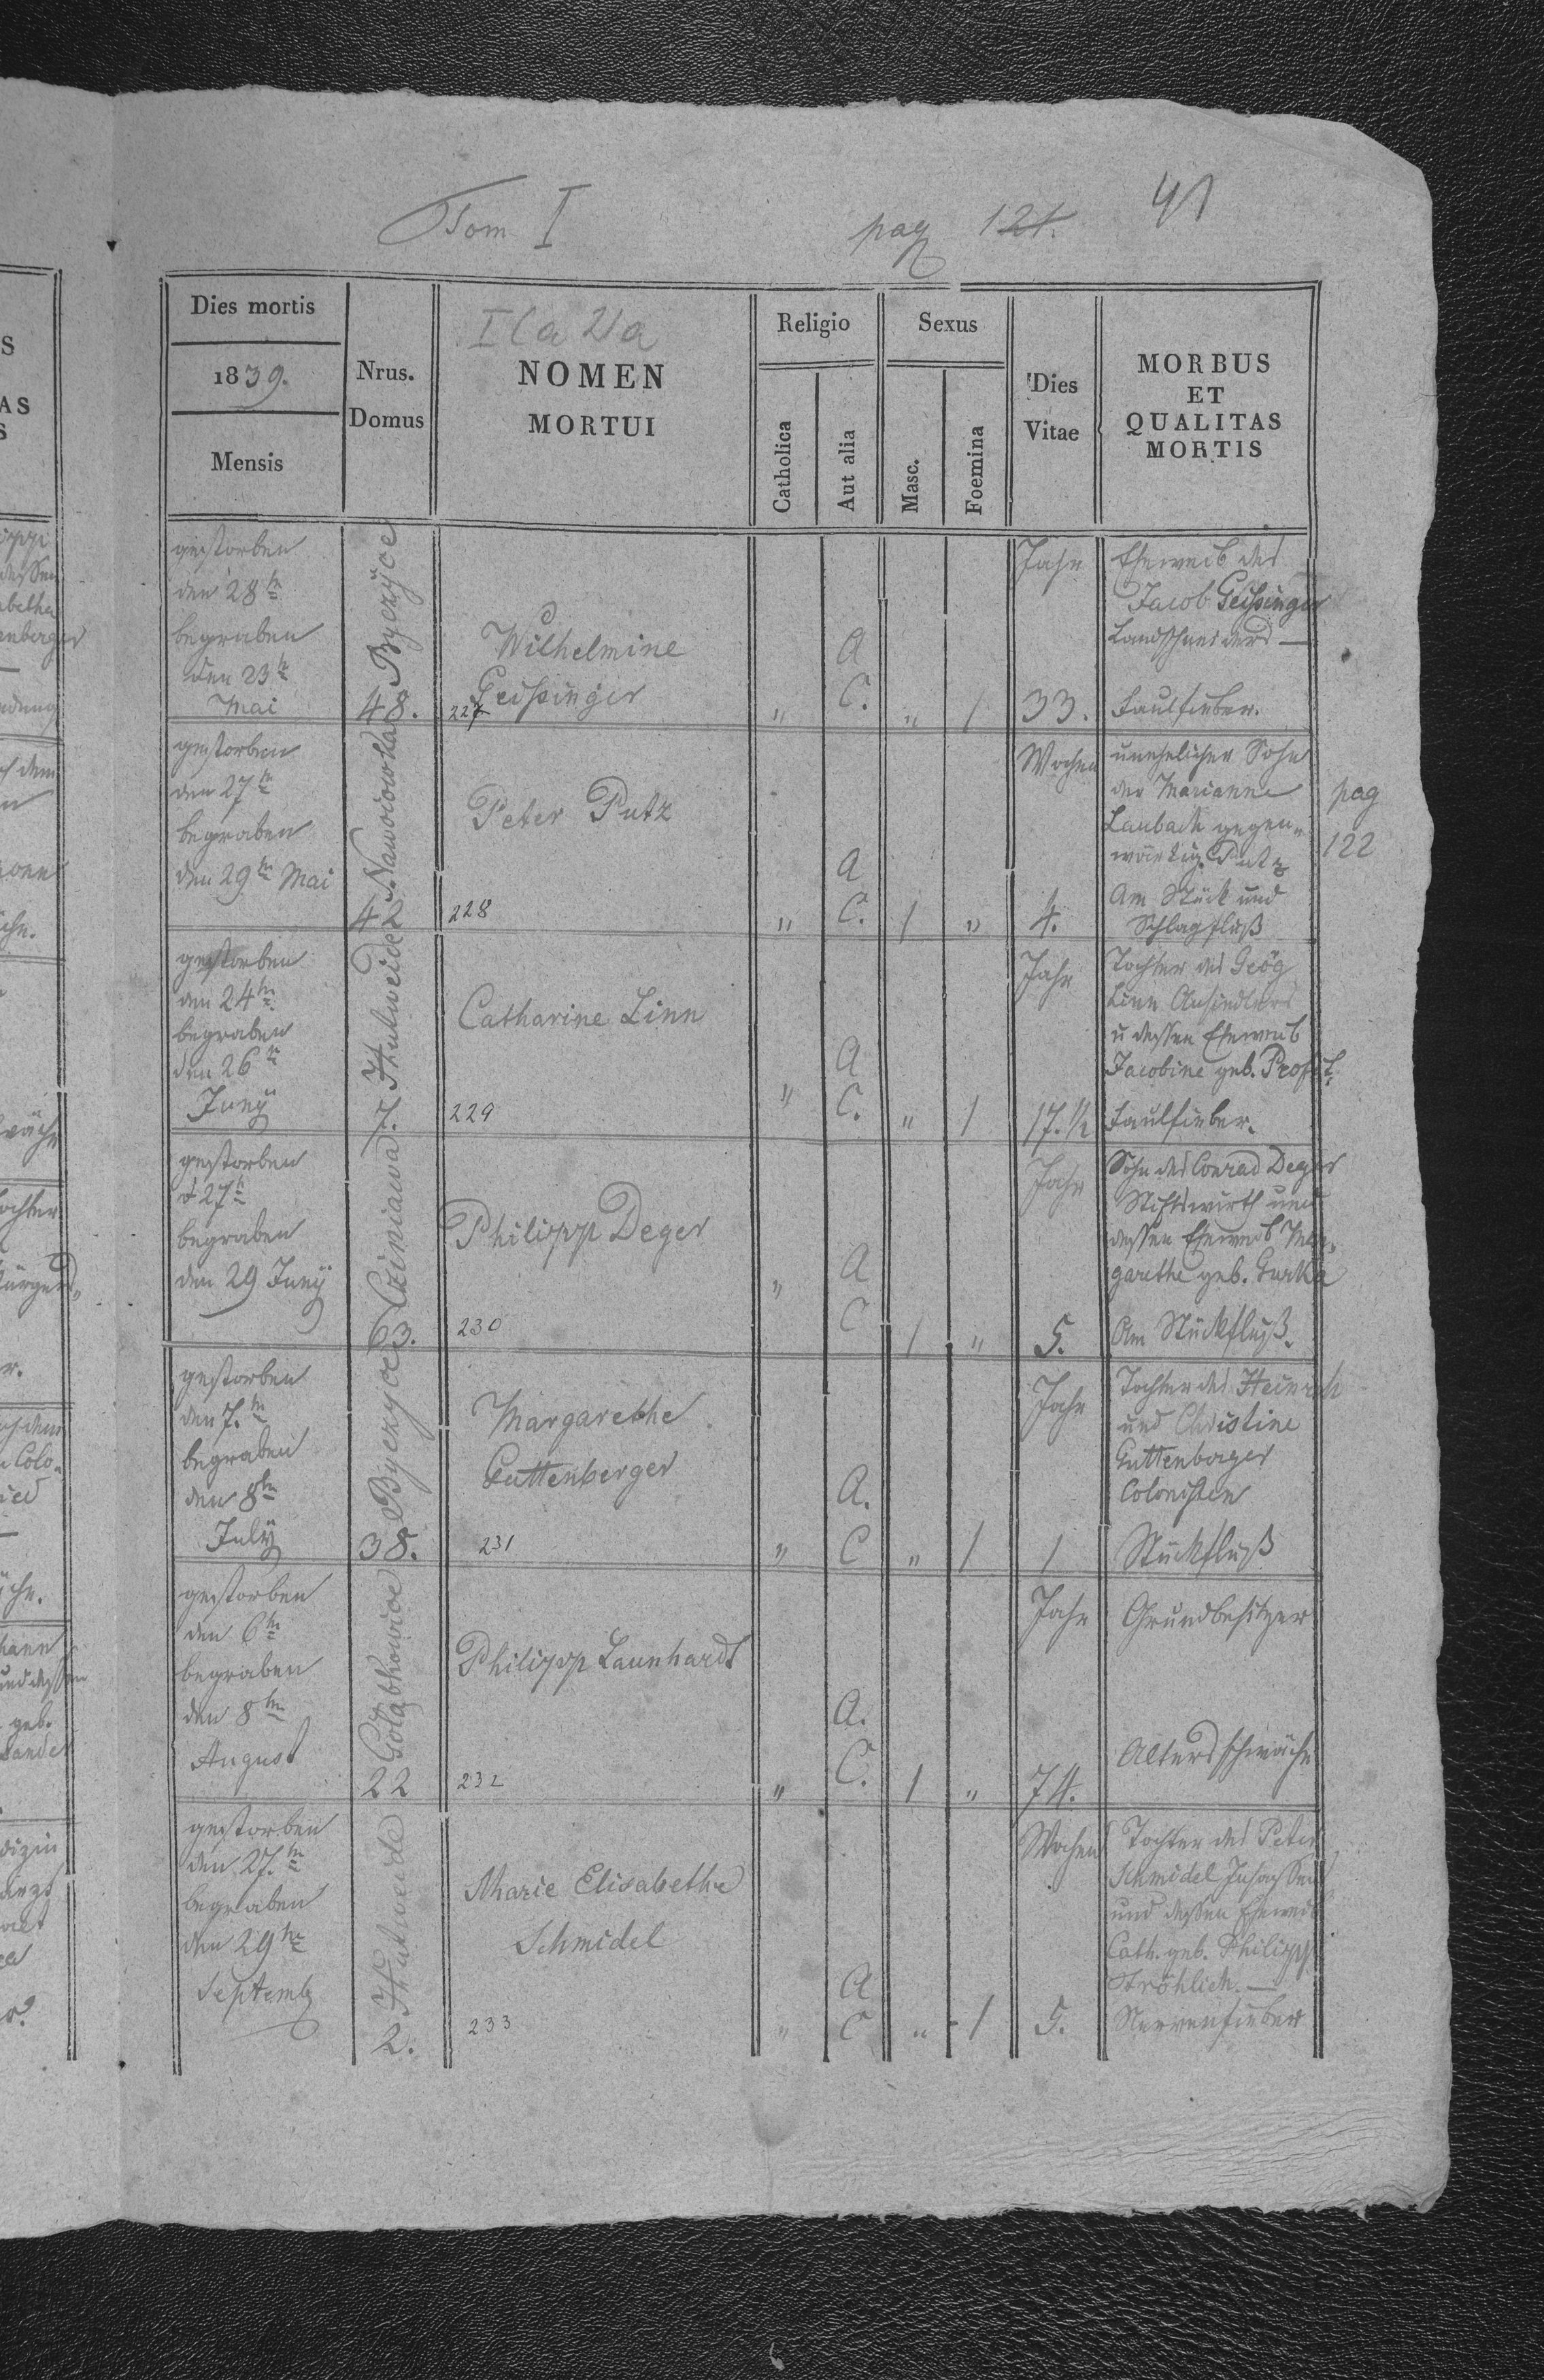 Tom I pag 121. 41
Dies mortis
1839.
Mensis
Nrus.
Domus
NOMEN
MORTUI
Religio
Catholica
Aut alia
Sexus
Masc.
Foemina
Dies
Vitae
MORBUS
ET
QUALITAS
MORTIS
gestorben
den 28tn
begraben
den 23tn
Mai
Byczyce
48.
Wilhelmine
Geissinger
227
"
A
C.
"
1
Jahr
33.
Eheweib des
Jacob Geissinger
Landschneiders —
Faulfieber.
gestorben
den 27tn
begraben
den 29tn Mai
Nawoiowka
4
Peter Putz
228
"
A
C.
1
"
Wochen
4.
unehelicher Sohn
der Marianne
Laubach gegen„
wärtig. Putz
Am Stück und
Schlagfluß
pag
122
gestorben
den 24tn
begraben
den 26tn
Juny
Hutweide
7
Catharine Linn
229
"
A
C.
"
1
Jahr
17.½
Tochter des Geög
Linn Ansiedlers
u dessen Eheweib
Jacobine geb. Profit.
Faulfieber.
gestorben
d 27tn
begraben
den 29 Juny
63.
Philipp Deger
230
"
A
C
1
"
Jahr
5.
Sohn des Conrad Deger
und
dessen Eheweib Mar„
garethe geb. Gurka
Am Stückfluß.
gestorben
den 7.tn
begraben
den 8tn
July
Byczyce
38.
Margarethe
Guttenberger
231
"
A.
C
"
1
Jahr
1
Tochter des Heinrich
und Christine
Guttenberger
Colonisten
Stückfluß
gestorben
den 6tn
begraben
den 8tn
August
Gołąbkowice
22
Philipp Launhardt
232
"
A.
C.
1
"
Jahr
74.
Grundbesitzer
Altersschwäche
gestorben
den 27.tn
begraben
den 29tn
Septemb
Hutweide
2.
Marie Elisabethe
Schmidel
233
"
A
C
"
1
Wochen
5.
Tochter des Peter
Schmidel Insassen
und dessen Eheweib
Cath. geb. Philipp
Fröhlich. —
Nervenfieber